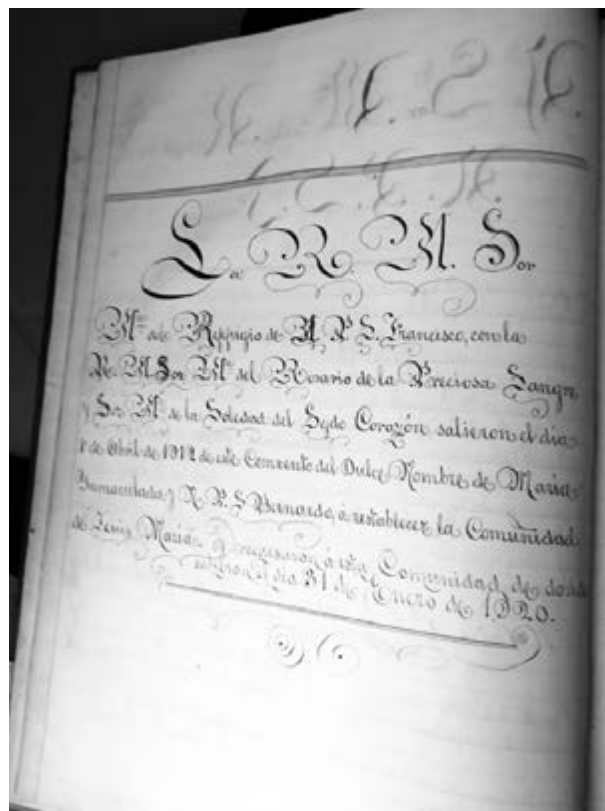 La R. M. Sor
M.ª del Refugio de N. P. S. Francisco, con la
R. M. Sor M.ª del Rosario de la Preciosa Sangre,
y Sor M.ª de la Soledad del Sgdo Corazón salieron el dia
de Abril de 1912 de este Convento del Dulce Nombre de Maria
Inmaculada y N. P. S. Bernardo, á restablecer la Comunidad
de Jesús Maria. y regresaron á esta Comunidad, de donde
salieron el dia 31 de Enero de 1920.